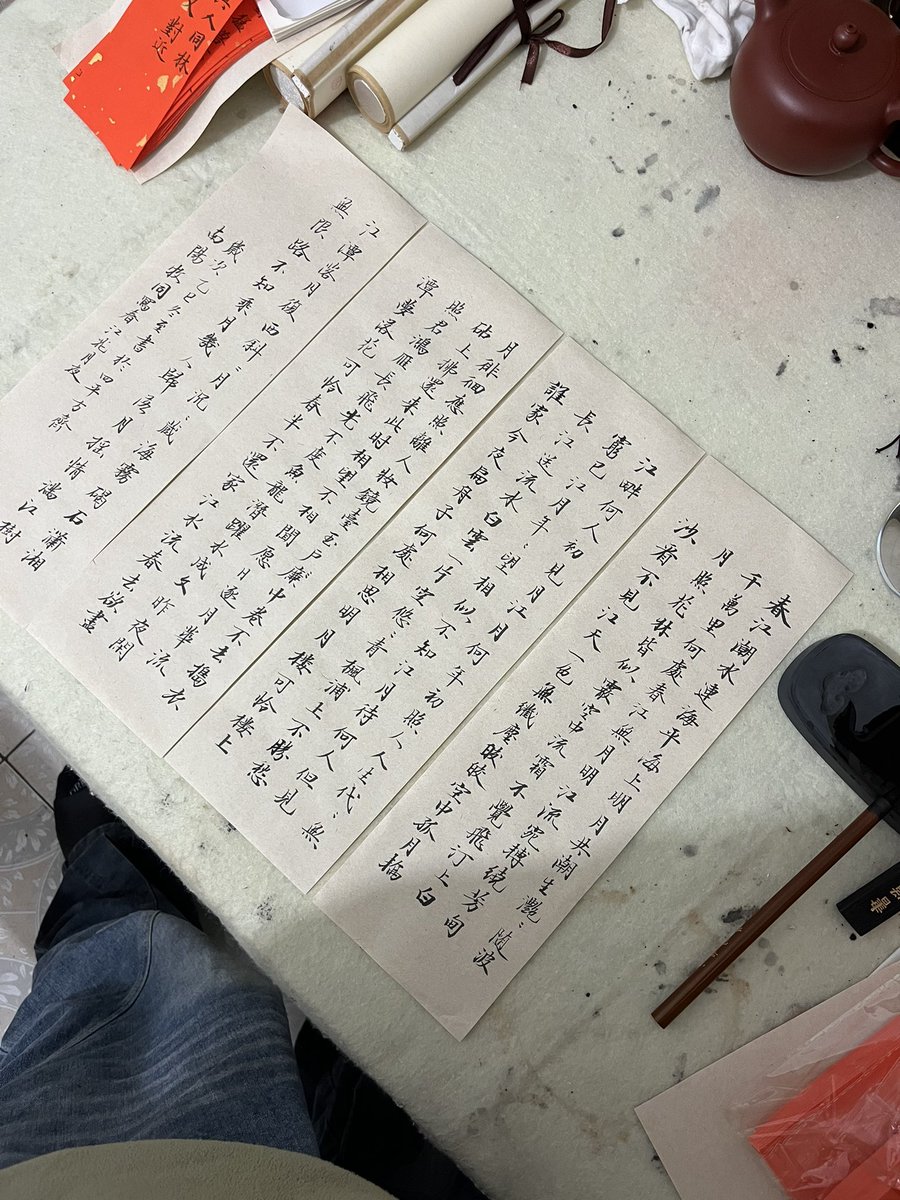 春江潮水連海平海上明月共潮生灧〻隨波
千萬里何處春江無月明江流宛轉繞芳甸
月照花林皆似霰空中流霜不覺飛汀上白
沙看不見江天一色無纖塵皎皎空中孤月輪
江畔何人初見月江月何年初照人人生代〻無
窮已江月年〻望相似不知江月待何人但見
長江送流水白雲一片空悠〻青楓浦上不勝愁
誰家今夜扁舟子何處相思明月楼可怜楼上
月徘徊應照離人妝鏡臺玉户廉中卷不去搗衣
砧上拂還來此時相望不相聞愿日逐月華流
照君鴻雁長飛光不度魚龍潛躍水成文昨夜閑
潭夢落花可怜春半不還家江水流春去欲盡
江潭落月復西斜〻月沉〻藏海霧碣石瀟湘
無限路不知乘月幾人歸落月摇情滿江樹
歲次乙巳冬至書於四平方齊
南陽牧同寫春江花月夜
林
人同
對近